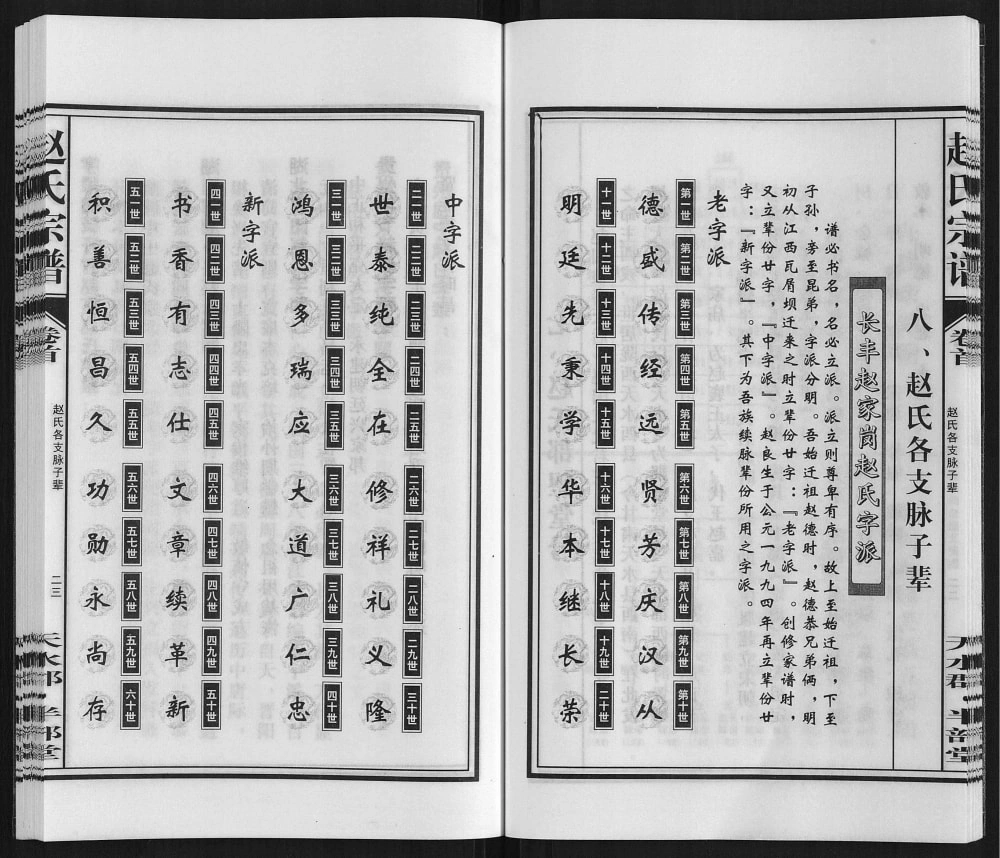 赵氏宗谱
卷首
赵氏各支脉子辈
天水郡
半部堂
八、赵氏各支脉子辈
长丰赵家岗赵氏字派
谱必书名，名必立派。派立则尊卑有序。故上至始迁祖，下至
子孙，旁至昆弟，字派分明。吾始迁祖赵德时，赵德恭兄弟俩，明
初从江西瓦屑坝迁来之时立辈份廿字：『老字派』。创修家谱时，
又立辈份廿字，『中字派』。赵良生于公元一九九四年再立辈份廿
字：『新字派』。其下为吾族续脉辈份所用之字派。
老字派
第一世 第二世 第三世 第四世 第五世 第六世 第七世 第八世 第九世 第十世
德盛传经远贤芳庆汉从
十一世 十二世 十三世 十四世 十五世 十六世 十七世 十八世 十九世 二十世
明廷先秉学华本继长荣
中字派
二一世 二二世 二三世 二四世 二五世 二六世 二七世 二八世 二九世 三十世
世泰纯全在修祥礼义隆
三一世 三二世 三三世 三四世 三五世 三六世 三七世 三八世 三九世 四十世
鸿恩多瑞应大道广仁忠
新字派
四一世 四二世 四三世 四四世 四五世 四六世 四七世 四八世 四九世 五十世
书香有志仕文章续革新
五一世 五二世 五三世 五四世 五五世 五六世 五七世 五八世 五九世 六十世
积善恒昌久功勋永尚存
赵氏宗谱
卷首
赵氏各支脉子辈
二三
天水郡
半部堂